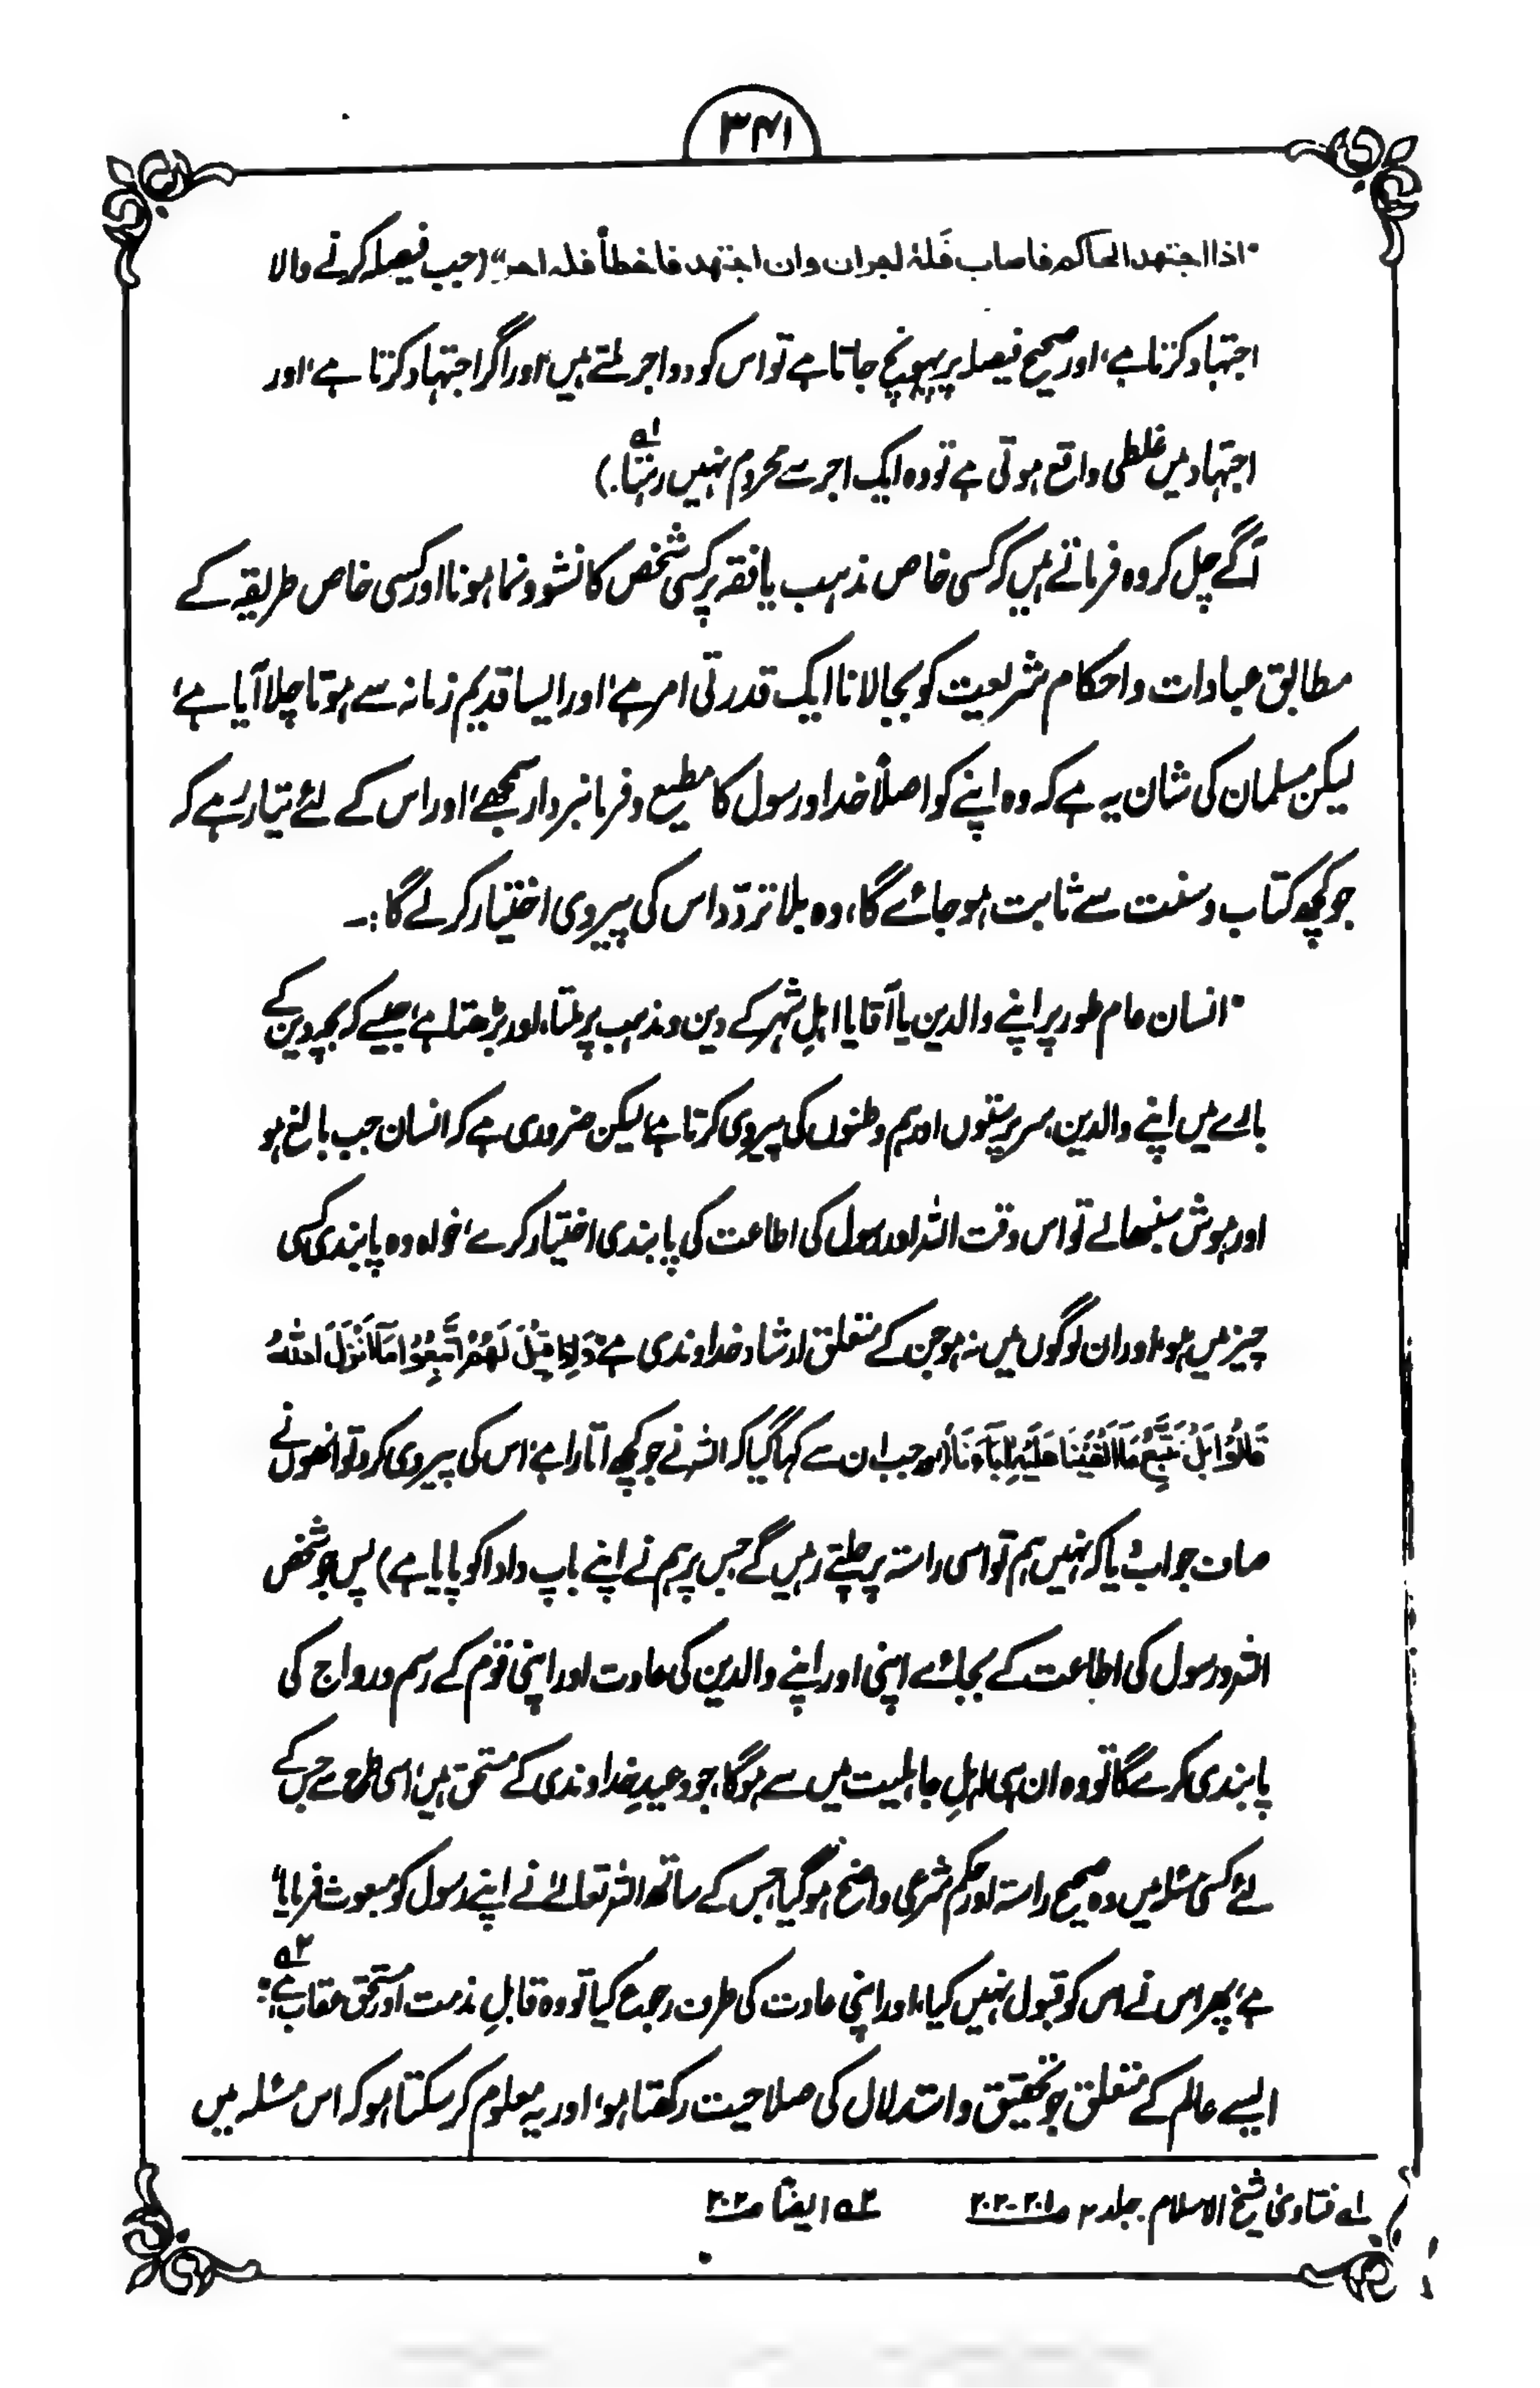 ۳۴۱
"اذا اجتهد الحاکم فاصاب فَلهٗ اجران وان اجتهد فاخطأ فله اجر" (جب فیصلہ کرنے والا
اجتہاد کرتا ہے، اور صحیح فیصلہ پر پہونچ جاتا ہے تو اس کو دو اجر ملتے ہیں، اور اگر اجتہاد کرتا ہے، اور
اجتہاد میں غلطی واقع ہوتی ہے تو وہ ایک اجر سے محروم نہیں رہتا.)۱؎
آگے چل کر وہ فرماتے ہیں کہ کسی خاص مذہب یا فقہ پر کسی شخص کا نشوونما ہونا اور کسی خاص طریقہ کے
مطابق عبادات و احکام شریعت کو بجا لانا ایک قدرتی امر ہے، اور ایسا قدیم زمانہ سے ہوتا چلا آیا ہے،
لیکن مسلمان کی شان یہ ہے کہ وہ اپنے کو اصلاً خدا و رسول کا مطیع و فرمانبردار سمجھے، اور اس کے لئے تیار رہے کہ
جو کچھ کتاب و سنت سے ثابت ہو جائے گا، وہ بلا تردّد اس کی پیروی اختیار کر لے گا:۔
"انسان عام طور پر اپنے والدین یا آقا یا اہلِ شہر کے دین و مذہب پر پلتا، اور بڑھتا ہے، جیسے کہ بچہ دین کے
بارے میں اپنے والدین، سرپرستوں اور ہم وطنوں کی پیروی کرتا ہے، لیکن ضروری ہے کہ انسان جب بالغ ہو
اور ہوش سنبھالے تو اس وقت اللہ اور رسول کی اطاعت کی پابندی اختیار کرے، خواہ وہ پابندی کسی
چیز میں ہو، اور ان لوگوں میں نہ ہو جن کے متعلق ارشاد خداوندی ہے: وَاِذَا قِیْلَ لَهُمُ اتَّبِعُوْا مَآ اَنْزَلَ اللّٰهُ
قَالُوْا بَلْ نَتَّبِعُ مَآ اَلْفَیْنَا عَلَیْهِ اٰبَآءَنَا (اور جب ان سے کہا گیا کہ اللہ نے جو کچھ اتارا ہے، اس کی پیروی کرو تو انھوں نے
صاف جواب دیا کہ نہیں ہم تو اسی راستہ پر چلتے رہیں گے جس پر ہم نے اپنے باپ دادا کو پایا ہے) پس جو شخص
اللہ و رسول کی اطاعت کے بجائے اپنی اور اپنے والدین کی عادت اور اپنی قوم کے رسم و رواج کی
پابندی کرے گا تو وہ ان ہی اہلِ جاہلیت میں سے ہوگا، جو وعیدِ خداوندی کے مستحق ہیں، اسی طرح سے جس کے
لئے کسی مسئلہ میں وہ صحیح راستہ اور حکم شرعی واضح ہو گیا، جس کے ساتھ اللہ تعالےٰ نے اپنے رسول کو مبعوث فرمایا
ہے، پھر اس نے اس کو قبول نہیں کیا، اور اپنی عادت کی طرف رجوع کیا تو وہ قابلِ مذمت اور مستحق عقاب ہے۲؎:
ایسے عالم کے متعلق جو تحقیق و استدلال کی صلاحیت رکھتا ہو، اور یہ معلوم کر سکتا ہو کہ اس مسئلہ میں
۱؎ فتاویٰ شیخ الاسلام. جلد ۲ ص۲۰۱-۲۰۲ ۲؎ ایضًا ص۲۰۲